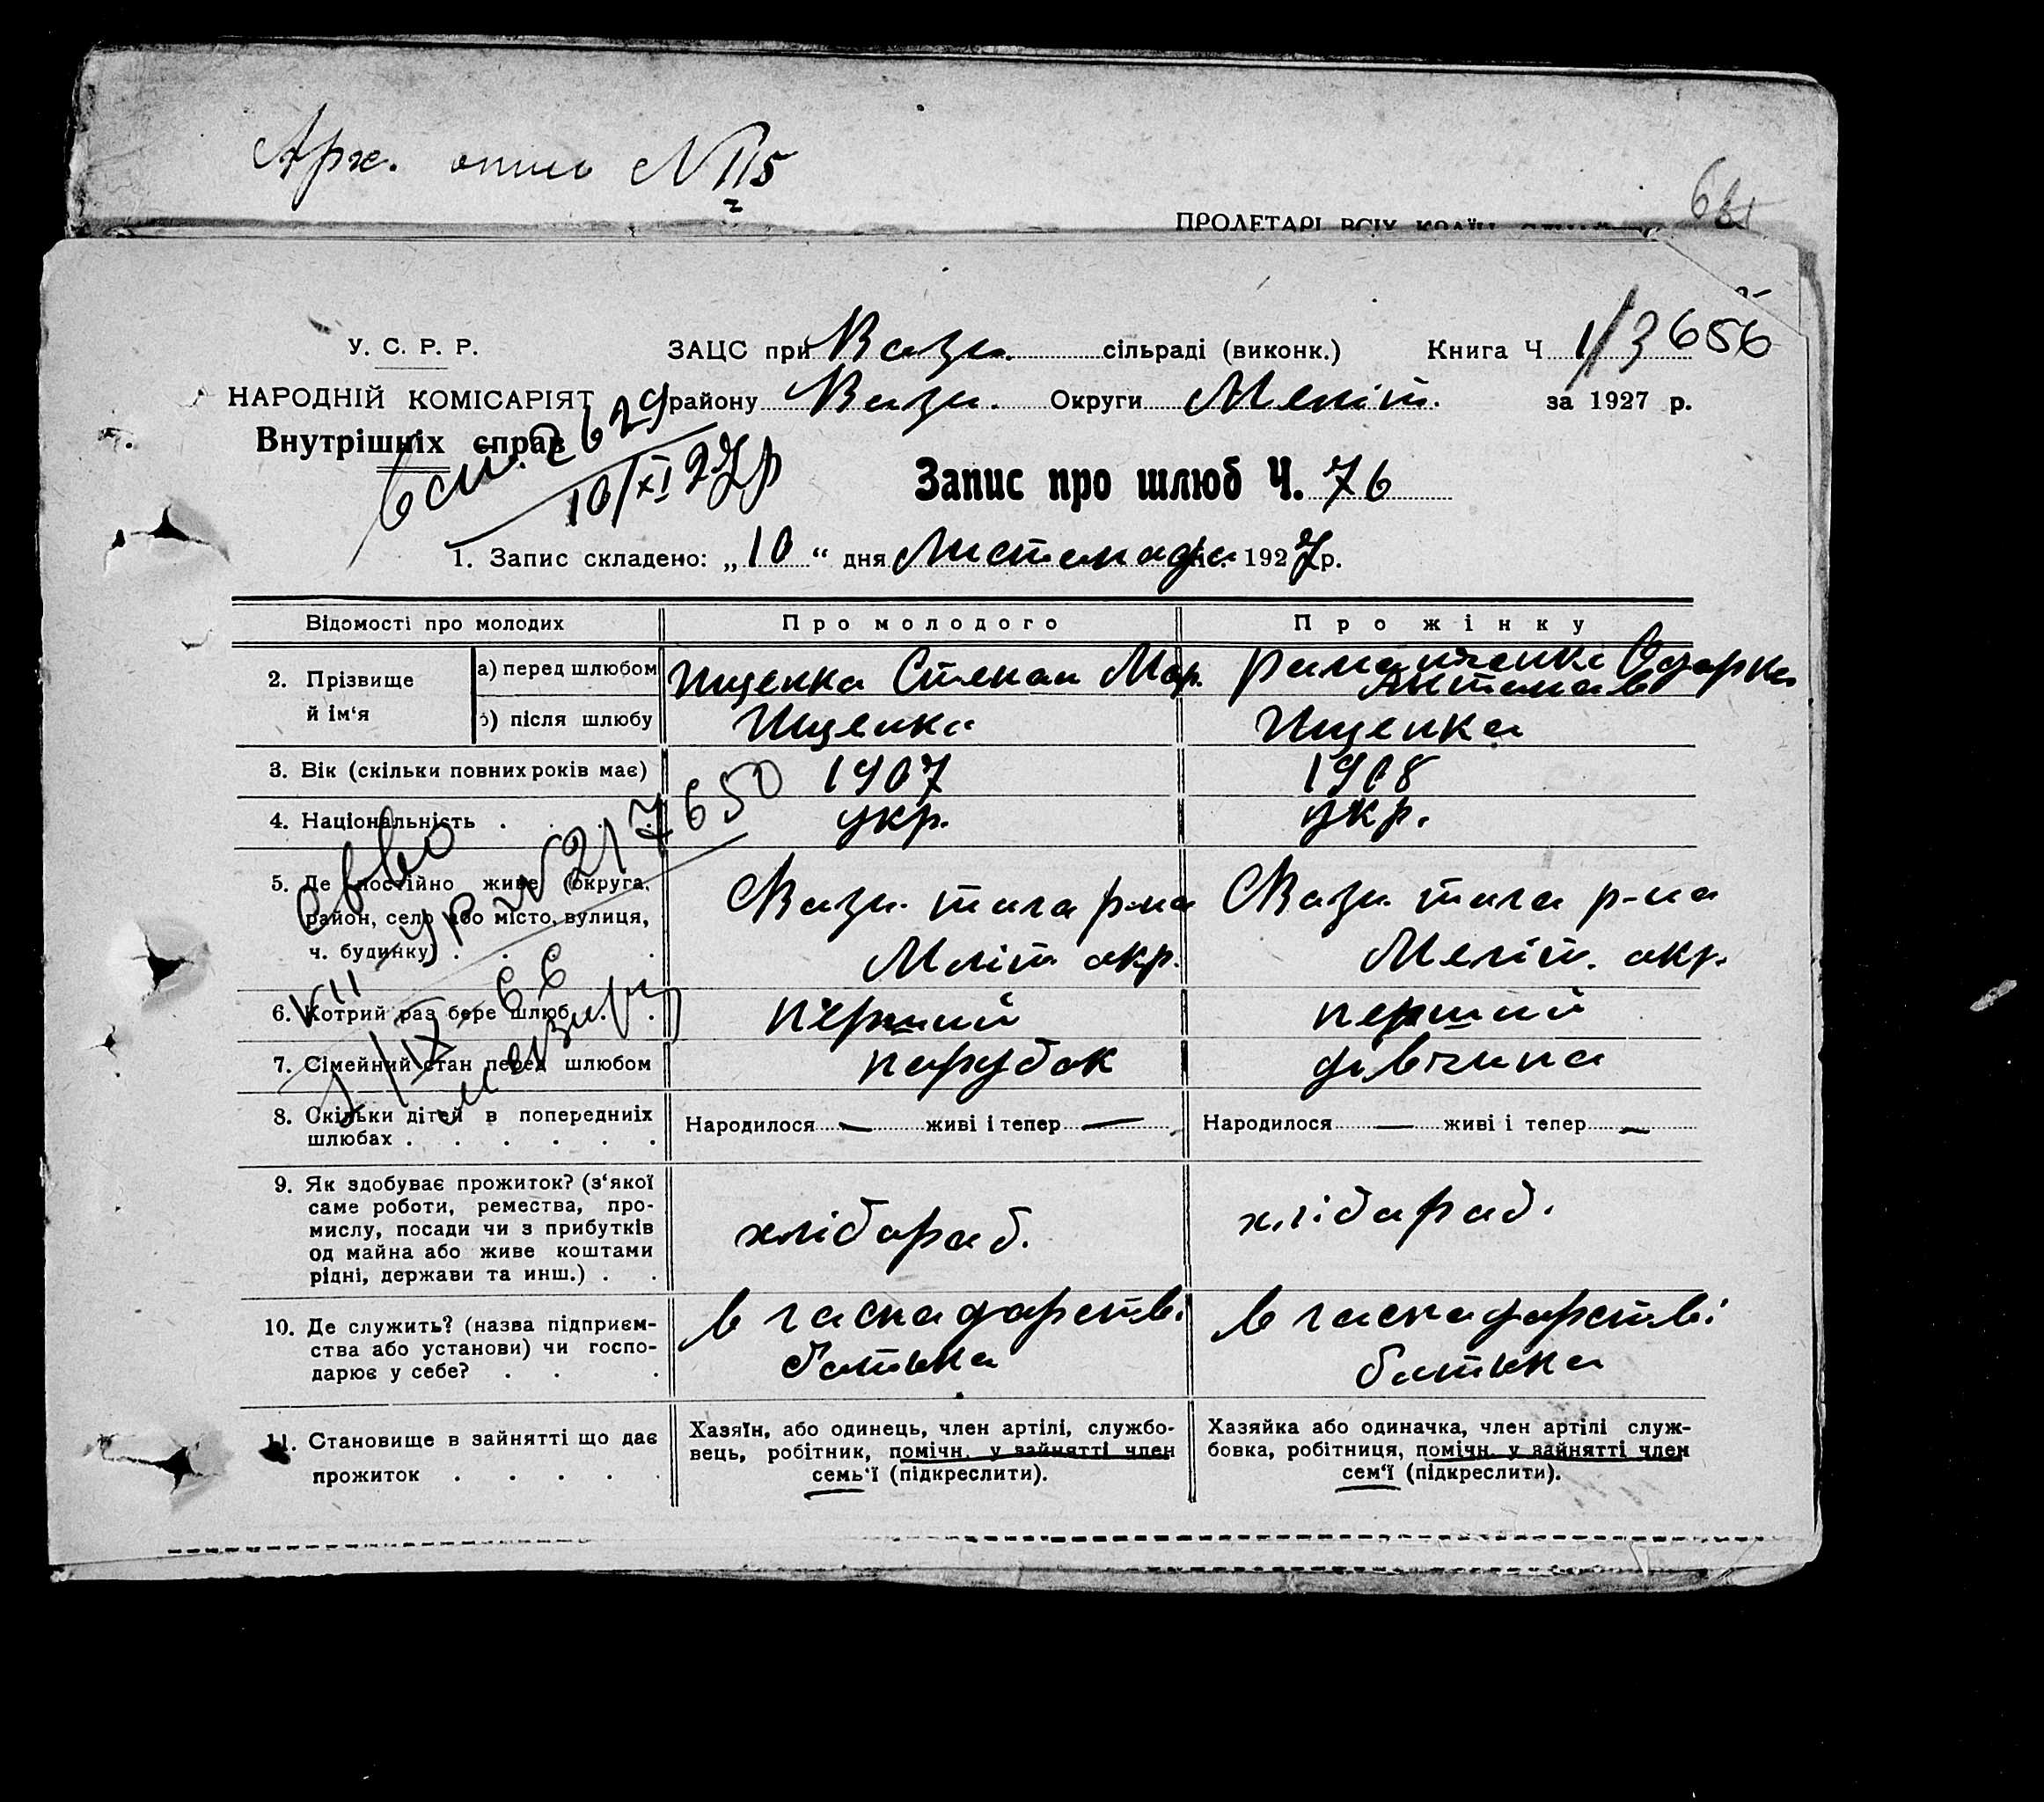 Арх. опись №115
2
ПРОЛЕТАРІ ВСІХ КРАЇН
У. С. Р. Р.
ЗАЦС при Вази. сільраді (виконк.) Книга Ч 1/3 656
НАРОДНІЙ КОМІСАРІЯТ району Вази. Округи Меліт. за 1927 р.
Внутрішніх справ
2629
10/XI 27р
Запис про шлюб Ч. 76
1. Запис складено: „10“ дня Листопада 1927 р.
Відомості про молодих Про молодого Про жінку
2. Прізвище й ім‘я
а) перед шлюбом Ищенка Степан Мар. Одарка
б) після шлюбу Ищенка Ищенка
3. Вік (скільки повних років має) 1907 1908
4. Національність . укр. укр.
5. Де постійно живе (округа, район, село або місто, вулиця, ч. будинку) .
Вази. тога р-на Вази. тога р-на
Мліт. окр. Меліт. окр.
6. Котрий раз бере шлюб . . перший перший
7. Сімейний стан перед шлюбом парубок дівчина
8. Скільки дітей в попередниіх шлюбах . . . . . .
Народилося — живі і тепер — Народилося — живі і тепер —
9. Як здобуває прожиток? (з‘якої
саме роботи, ремества, про-
мислу, посади чи з прибутків
од майна або живе коштами
рідні, держави та инш.) . .
хлібораб. хлібараб.
10. Де служить? (назва підприєм-
ства або установи) чи госпо-
дарює у себе? . . .
в гаспадарстві в гаспадарстві
батька батька
11. Становище в зайнятті що дає
прожиток . . . . .
Хазяїн, або одинець, член артілі, службо-
вець, робітник, помічн. у зайнятті член
семь‘ї (підкреслити).
Хазяйка або одиначка, член артілі служ-
бовка, робітниця, помічн. у зайнятті член
сем‘ї (підкреслити).